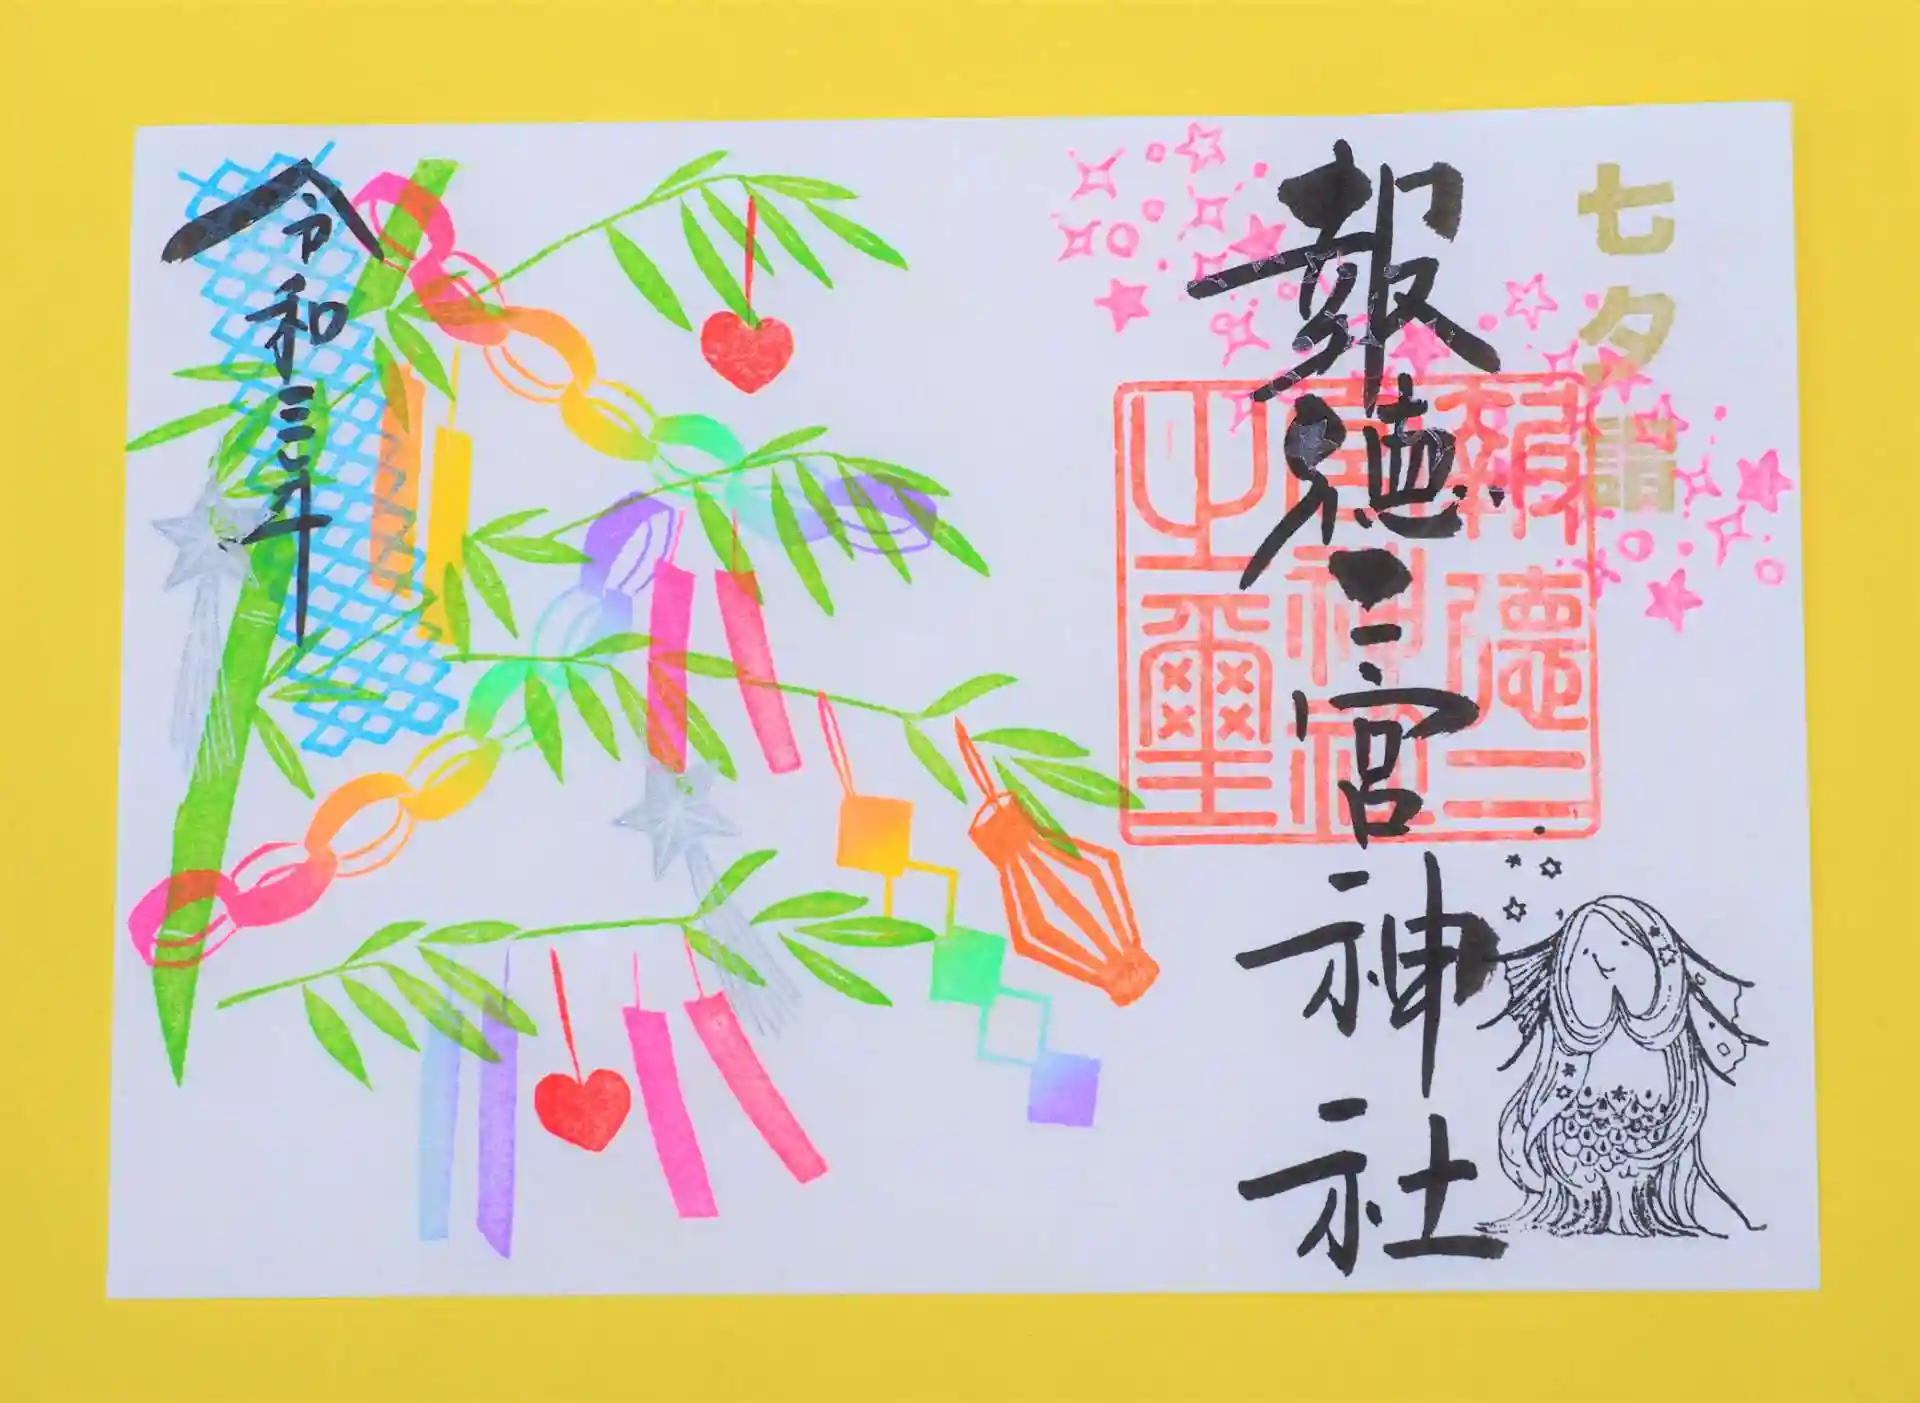 七夕詣
報徳二宮神社
報徳二
宮神社
之璽
令和三年